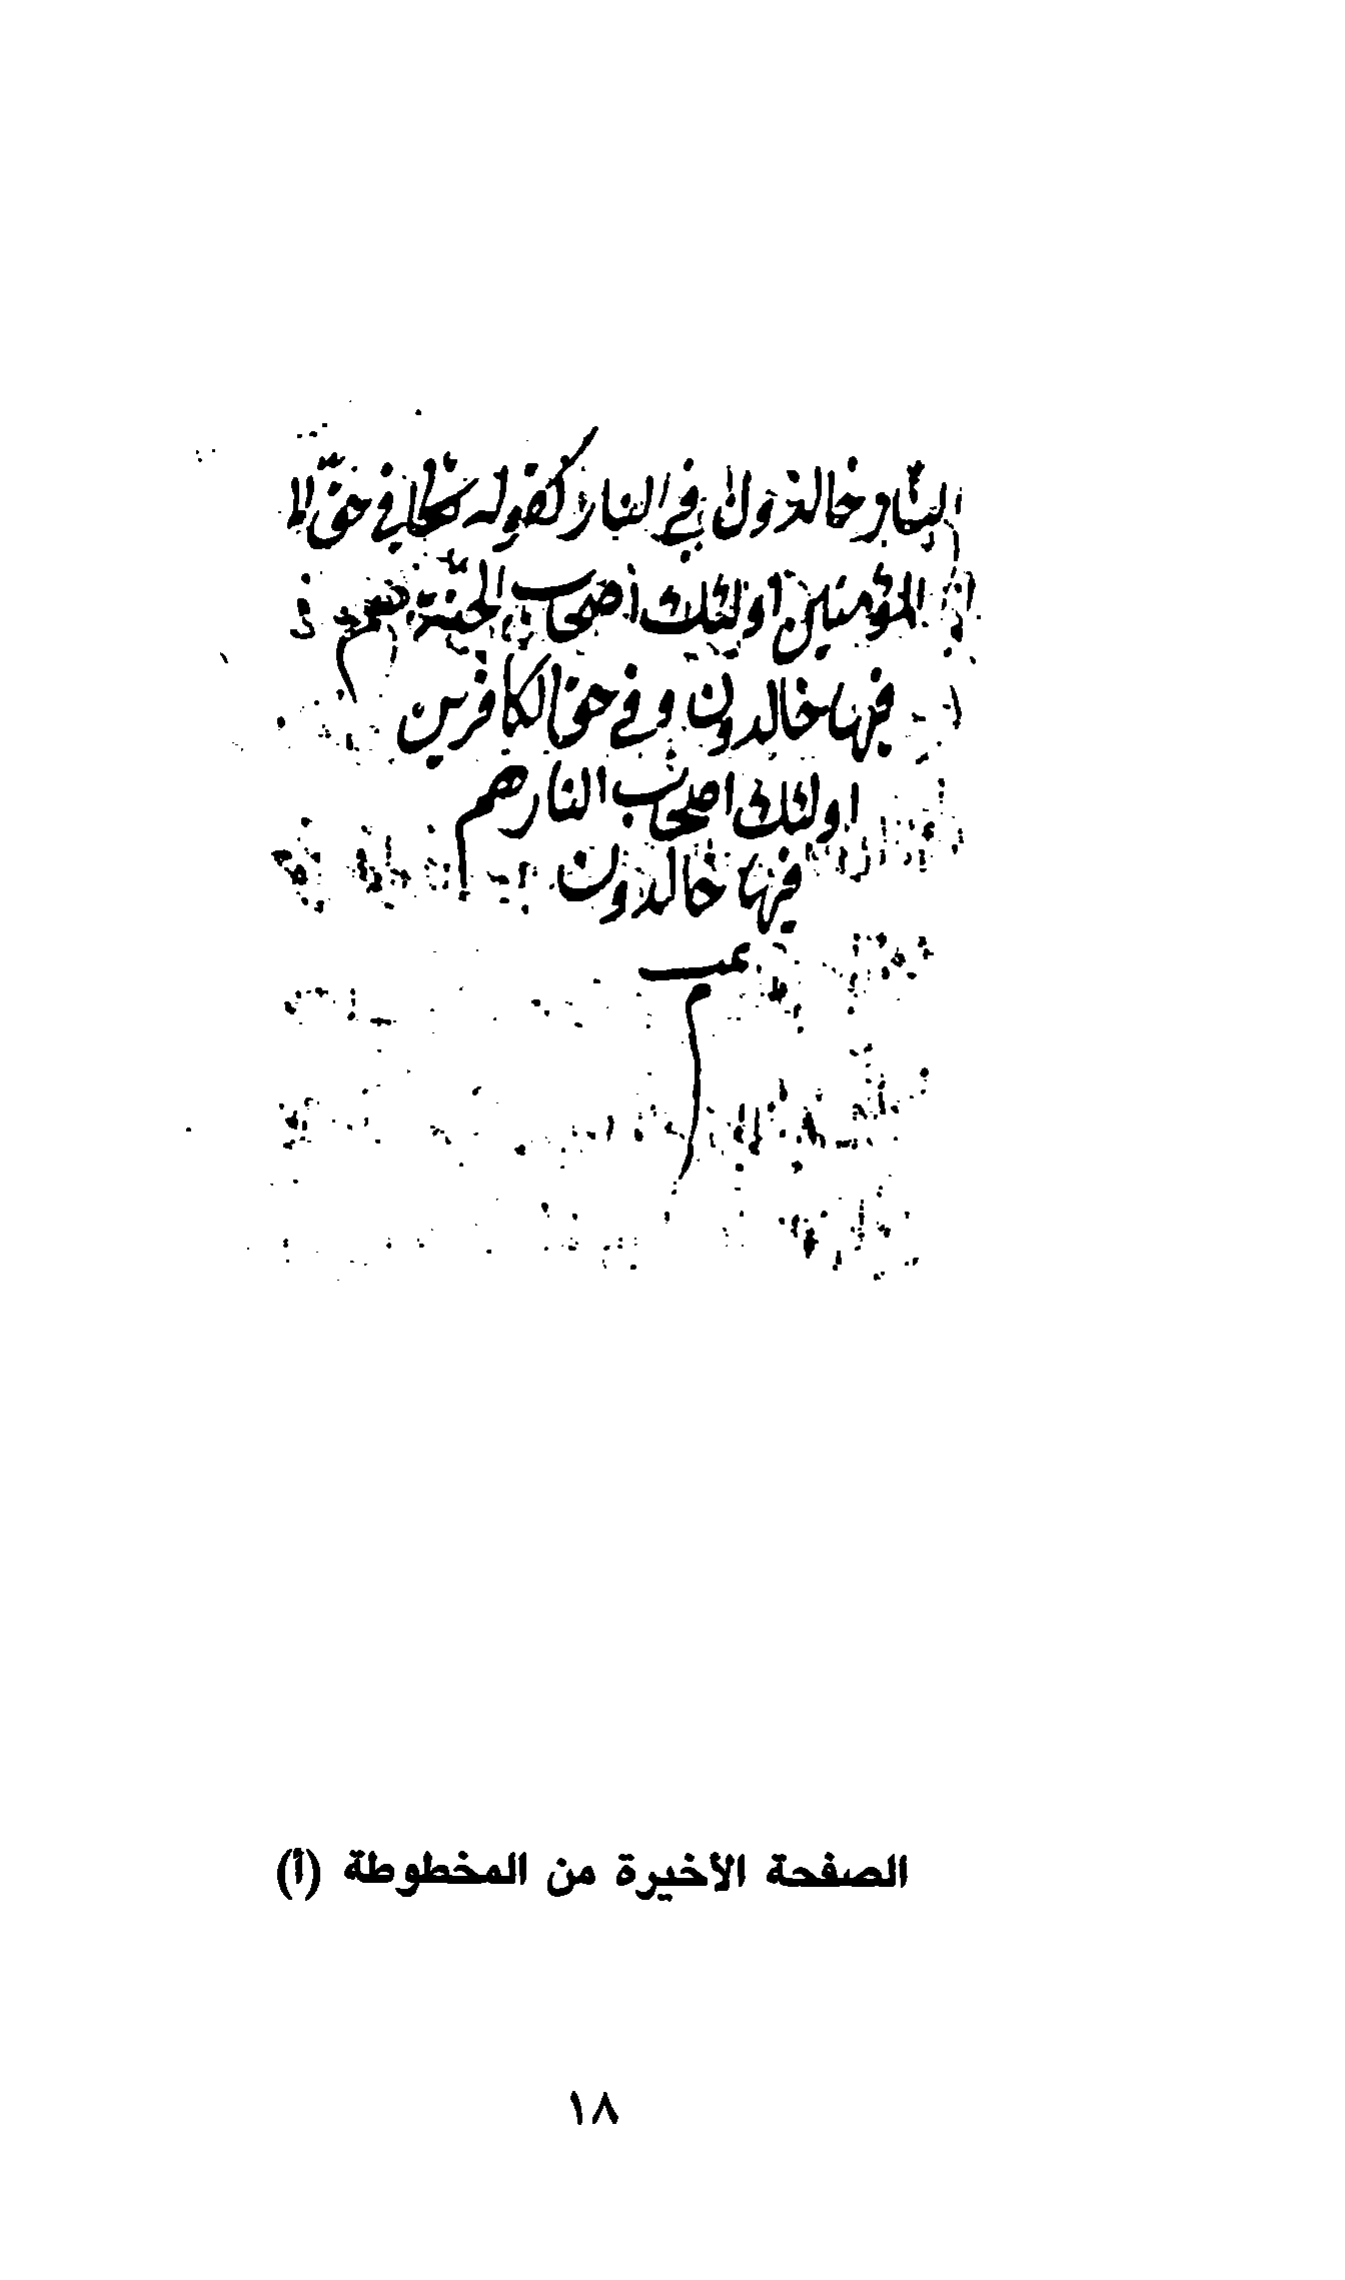 النار خالدون في النار كقوله تعالى في حق الم
المؤمنين اولئك اصحاب الجنة هم
فيها خالدون وفي حق الكافرين
اولئك اصحاب النار هم
فيها خالدون
تمت
م
الصفحة الأخيرة من المخطوطة (أ)
١٨